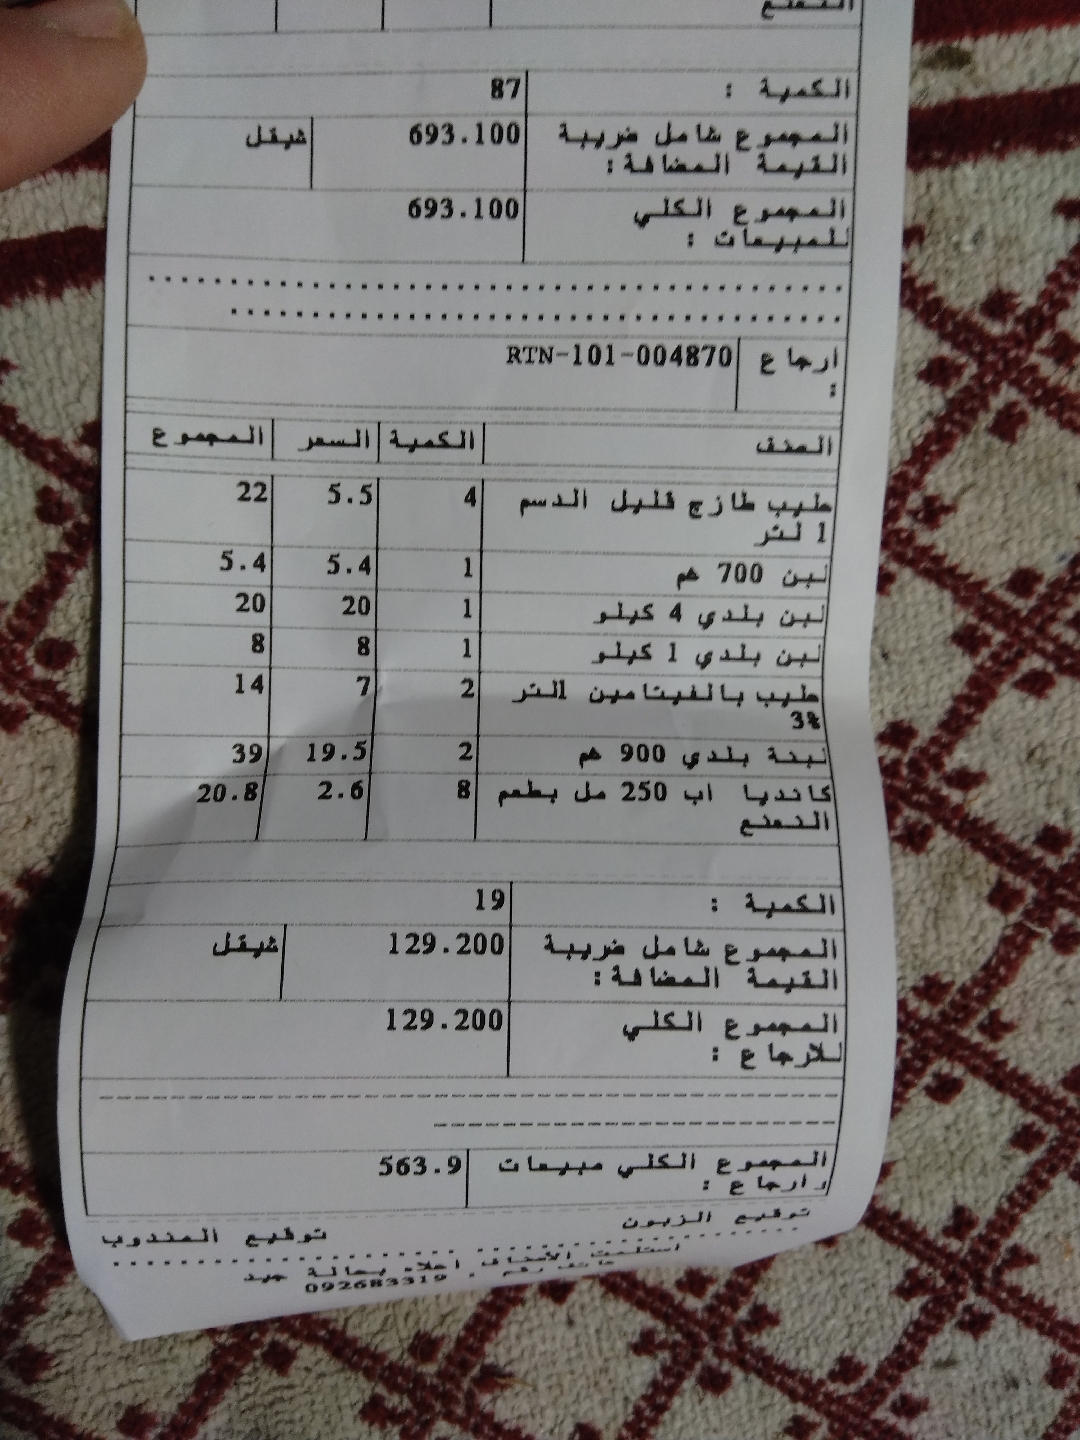 النعنع
الكمية : 87
المجموع شامل ضريبة 693.100 شيقل
القيمة المضافة:
المجموع الكلي 693.100
للمبيعات :
................................................
..........................................
ارجاع RTN-101-004870
:
الصنف الكمية السعر المجموع
حليب طازج قليل الدسم 4 5.5 22
1 لتر
لبن 700 غم 1 5.4 5.4
لبن بلدي 4 كيلو 1 20 20
لبن بلدي 1 كيلو 1 8 8
حليب بالفيتامين 1لتر 2 7 14
3%
لبنة بلدي 900 غم 2 19.5 39
كانديا اب 250 مل بطعم 8 2.6 20.8
النعنع
الكمية : 19
المجموع شامل ضريبة 129.200 شيقل
القيمة المضافة:
المجموع الكلي 129.200
للارجاع :
------------------------------------------------
----------------------------
المجموع الكلي مبيعات 563.9
وارجاع :
توقيع الزبون توقيع المندوب
استلمت الأصناف اعلاه بحالة جيد
هاتف رقم : 092683319